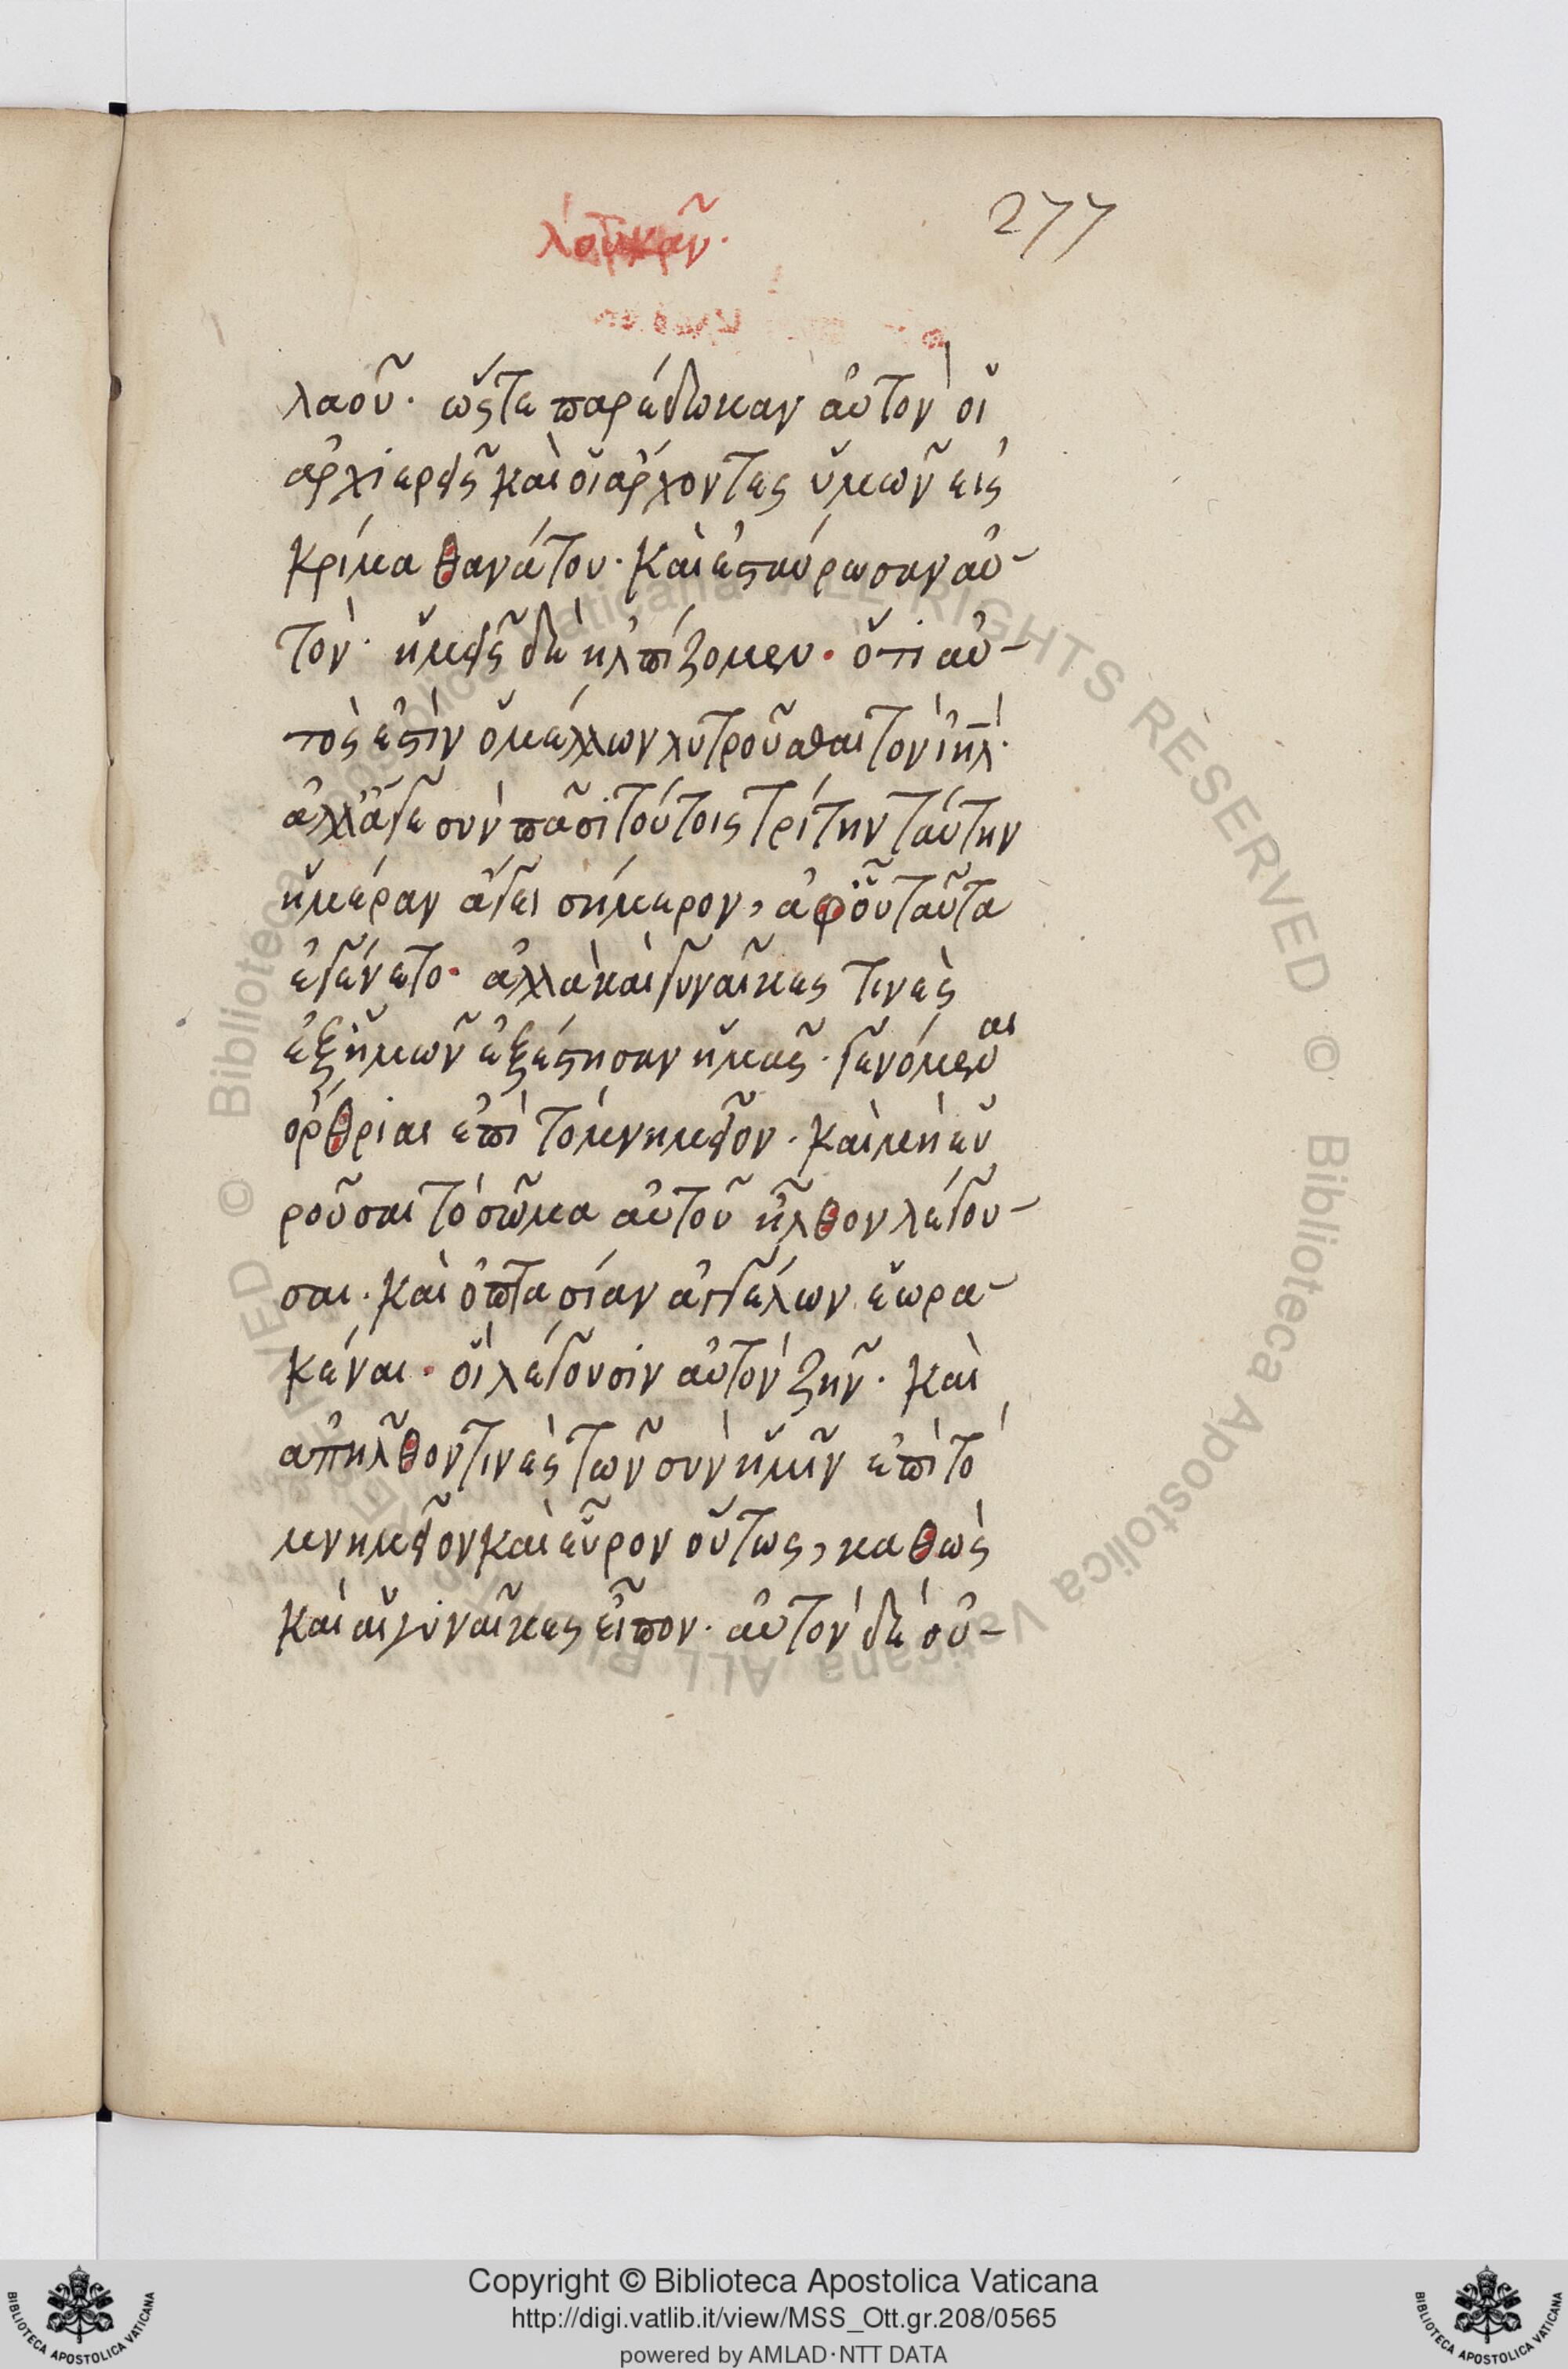 λουκᾶν·
277
λαοῦ· ὥστε παρέδωκαν αὐτὸν οἱ
ἀρχιερεῖς καὶ οἱ ἄρχοντες ὑμῶν εἰς
κρίμα θανάτου· καὶ ἐσταύρωσαν αὐ-
τόν· ἡμεῖς δὲ ἠλπίζομεν· ὅτι αὐ-
τός ἐστιν ὁ μέλλων λυτροῦσθαι τὸν ιηλ·
ἀλλάγε σὺν πᾶσι τούτοις τρίτην ταύτην
ἡμέραν ἄγει σήμερον, ἀφοὗ ταῦτα
ἐγένετο· ἀλλὰ καὶ γυναῖκες τινὲς
ἐξ ἡμῶν ἐξέστησαν ἡμᾶς· γενόμεναι
ὄρθριαι ἐπὶ τὸ μνημεῖον· καὶ μὴ εὑ
ροῦσαι τὸ σῶμα αὐτοῦ ἦλθον λέγου-
σαι· καὶ ὀπτασίαν ἀγγέλων ἑωρα-
κέναι· οἳ λέγουσιν αὐτὸν ζῆν· καὶ
ἀπῆλθον τινὲς τῶν σὺν ἡμῖν ἐπὶ τὸ
μνημεῖον καὶ εὗρον οὕτως, καθὼς
καὶ αἱ γυναῖκες εἶπον· αὐτὸν δὲ οὐ-
Copyright © Biblioteca Apostolica Vaticana
http://digi.vatlib.it/view/MSS_Ott.gr.208/0565
powered by AMLAD·NTT DATA
BIBLIOTECA APOSTOLICA VATICANA
BIBLIOTECA APOSTOLICA VATICANA
© Biblioteca Apostolica Vaticana ALL RIGHTS RESERVED © Biblioteca Apostolica Vaticana ALL RIGHTS RESERVED